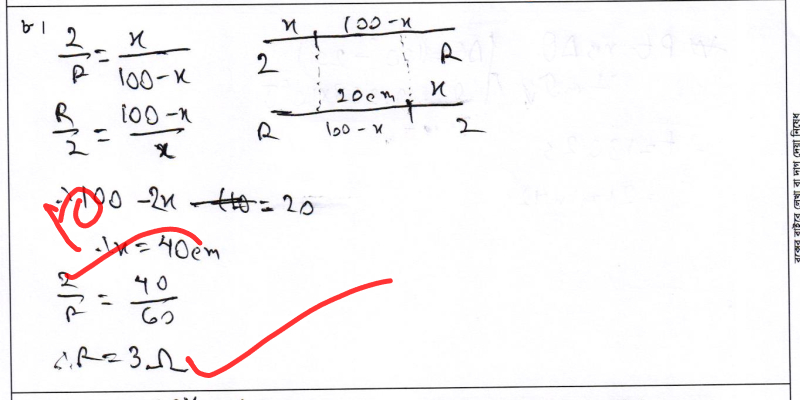 ৮।
2/R = x/(100-x)
x 100-x
2 R
R/2 = (100-x)/x
20cm x
R 100-x 2
∴ 100 - 2x = 20
∴ x = 40cm
2/R = 40/60
∴ R = 3Ω
বক্সের বাইরে লেখা বা দাগ দেয়া নিষেধ